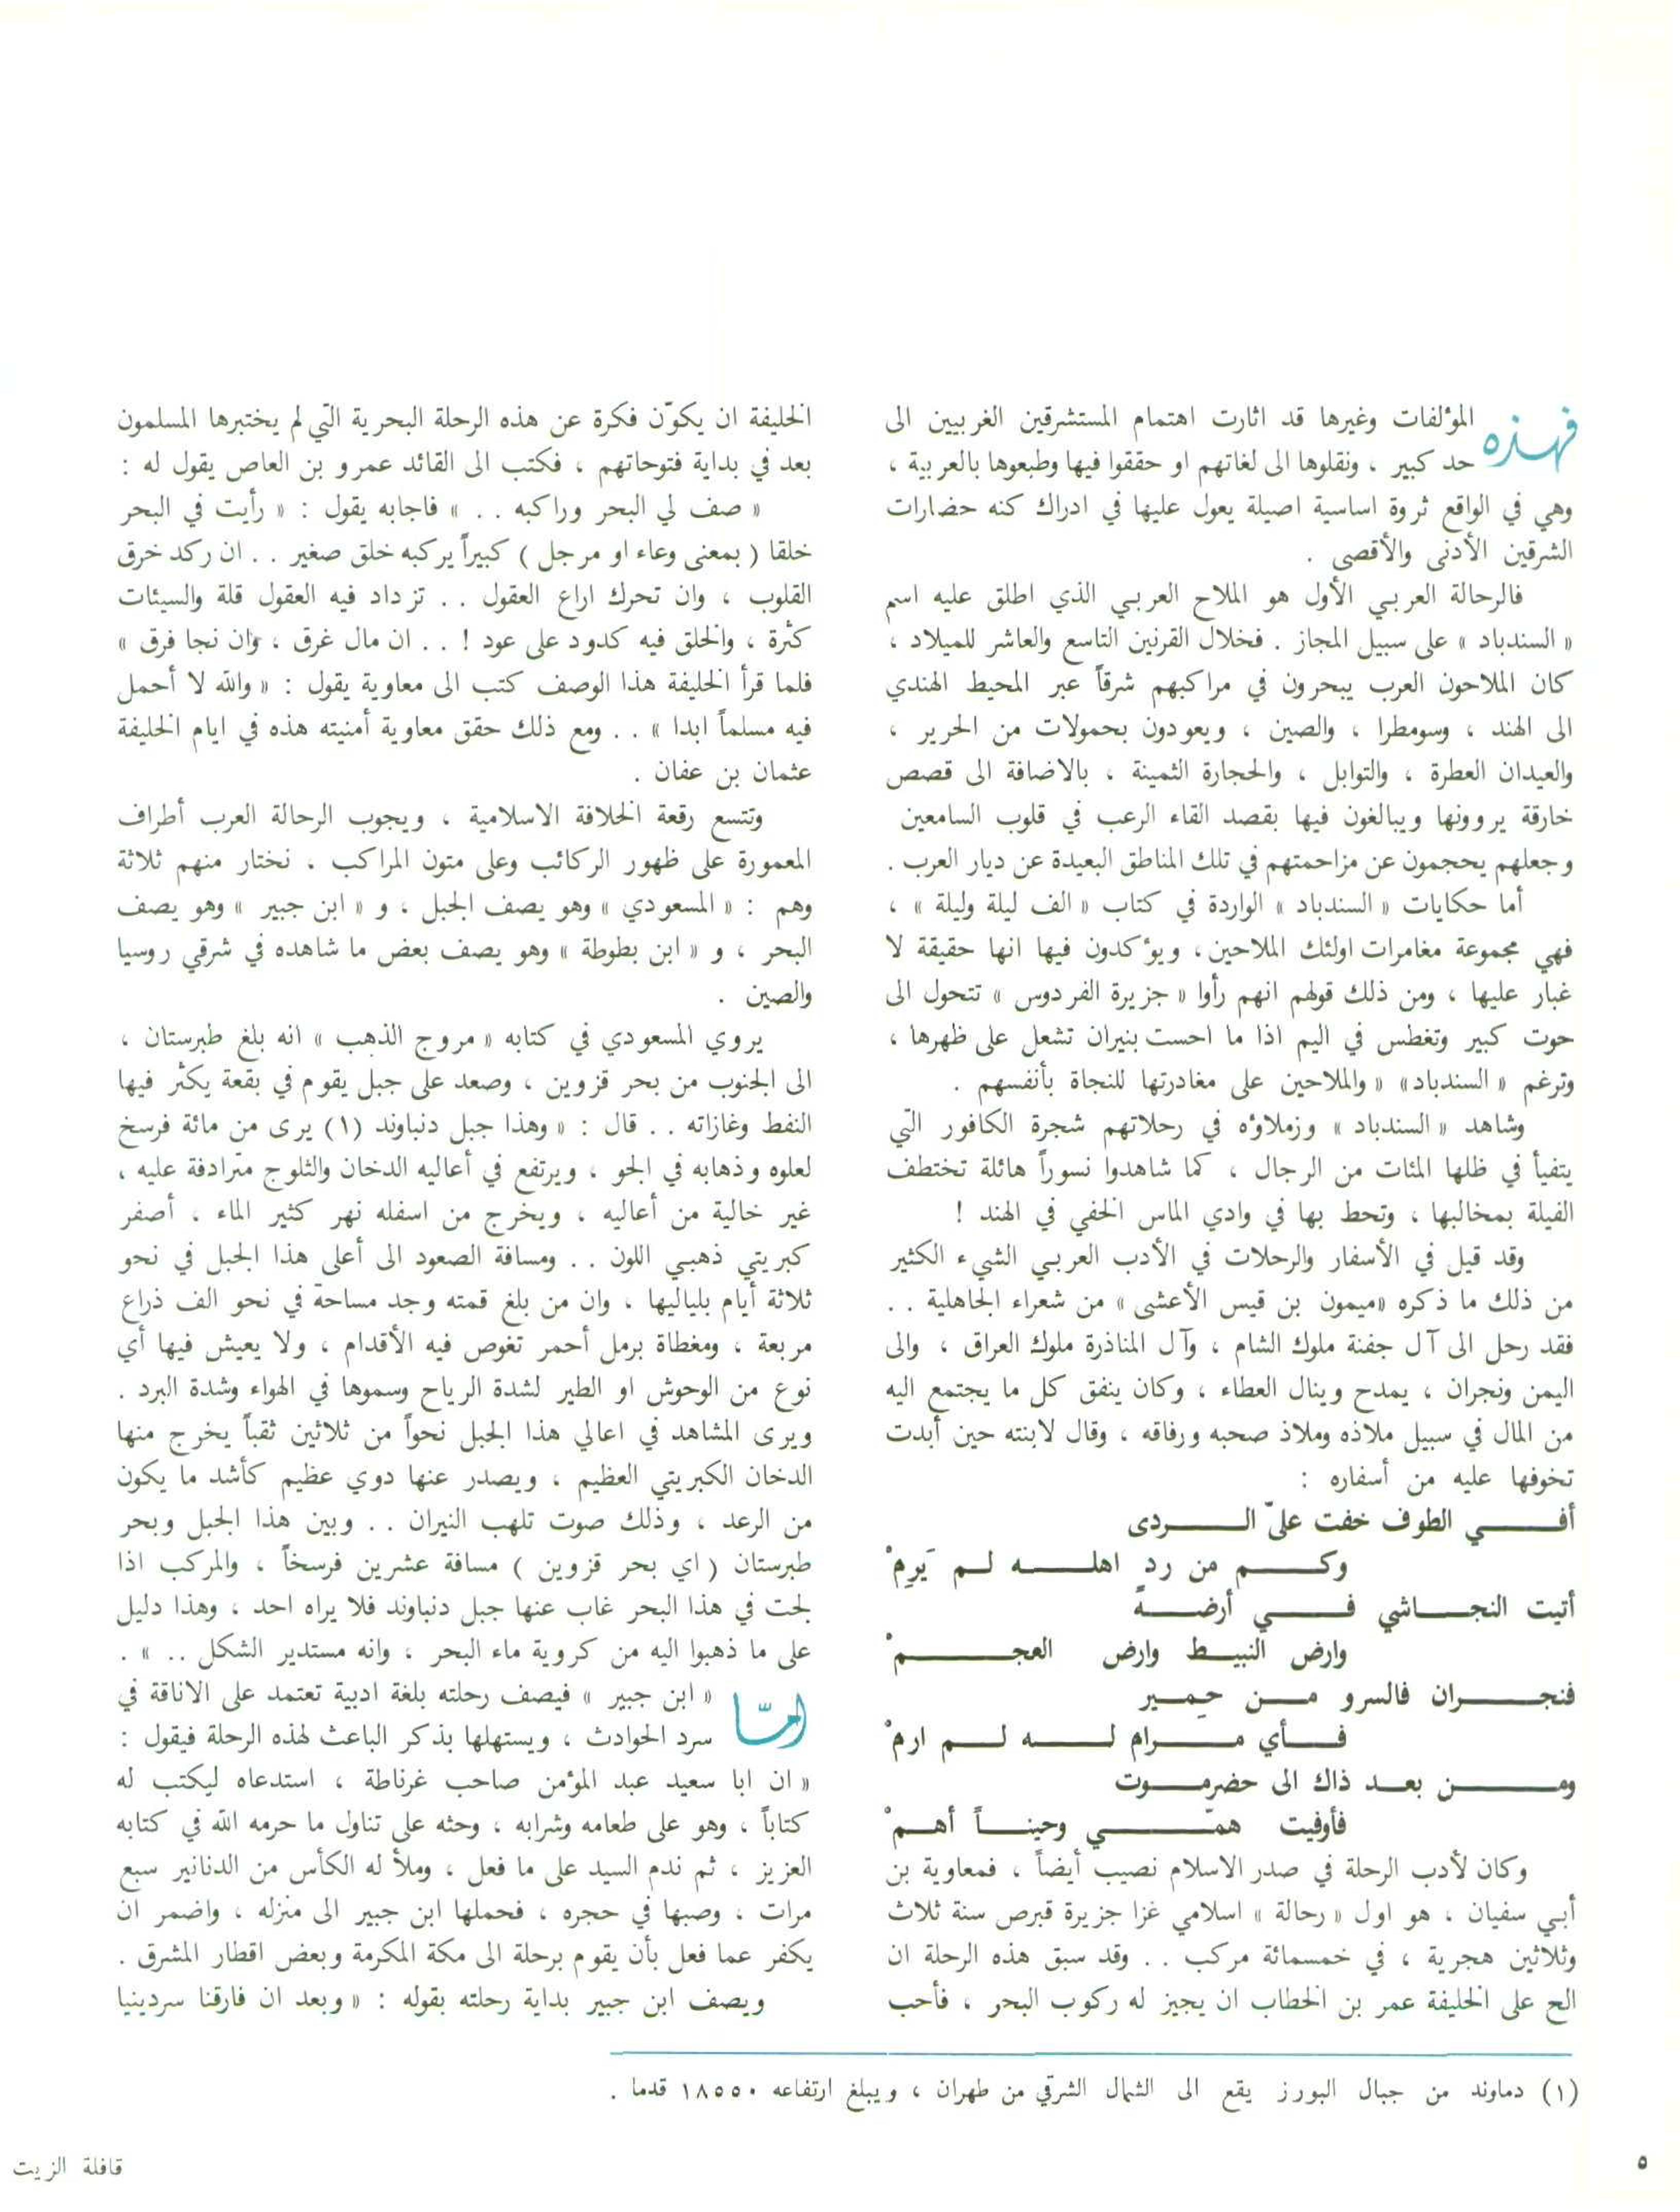 فهذه المؤلفات وغيرها قد اثارت اهتمام المستشرقين الغربيين الى
حد كبير ، ونقلوها الى لغاتهم او حققوا فيها وطبعوها بالعربية ،
وهي في الواقع ثروة اساسية اصيلة يعول عليها في ادراك كنه حضارات
الشرقين الأدنى والأقصى .
فالرحالة العربي الأول هو الملاح العربي الذي اطلق عليه اسم
« السندباد » على سبيل المجاز . فخلال القرنين التاسع والعاشر للميلاد ،
كان الملاحون العرب يبحرون في مراكبهم شرقاً عبر المحيط الهندي
الى الهند ، وسومطرا ، والصين ، ويعودون بحمولات من الحرير ،
والعيدان العطرة ، والتوابل ، والحجارة الثمينة ، بالاضافة الى قصص
خارقة يروونها ويبالغون فيها بقصد القاء الرعب في قلوب السامعين
وجعلهم يحجمون عن مزاحمتهم في تلك المناطق البعيدة عن ديار العرب .
أما حكايات « السندباد » الواردة في كتاب « الف ليلة وليلة » ،
فهي مجموعة مغامرات اولئك الملاحين ، ويؤكدون فيها انها حقيقة لا
غبار عليها ، ومن ذلك قولهم انهم رأوا « جزيرة الفردوس » تتحول الى
حوت كبير وتغطس في اليم اذا ما احست بنيران تشعل على ظهرها ،
وترغم « السندباد» « والملاحين على مغادرتها للنجاة بأنفسهم .
وشاهد « السندباد » وزملاؤه في رحلاتهم شجرة الكافور التي
يتفيأ في ظلها المئات من الرجال ، كما شاهدوا نسوراً هائلة تختطف
الفيلة بمخالبها ، وتحط بها في وادي الماس الخفي في الهند !
وقد قيل في الأسفار والرحلات في الأدب العربي الشيء الكثير
من ذلك ما ذكره «ميمون بن قيس الأعشى» من شعراء الجاهلية . .
فقد رحل الى آل جفنة ملوك الشام ، وآل المناذرة ملوك العراق ، والى
اليمن ونجران ، يمدح وينال العطاء ، وكان ينفق كل ما يجتمع اليه
من المال في سبيل ملاذه وملاذ صحبه ورفاقه ، وقال لابنته حين أبدت
تخوفها عليه من أسفاره :
أفـي الطوف خفت عليّ الـردى
وكـم من ردٍ اهلـه لـم يَرِمْ
أتيت النجـاشي فـي أرضـهَ
وارض النبيـط وارض العجـمْ
فنجـران فالسرو مـن حِميـر
فـأي مـرام لـه لـم ارمْ
ومـن بعـد ذاك الى حضرمـوت
فأوفيت همّـي وحينـاً أهـمْ
وكان لأدب الرحلة في صدر الاسلام نصيب أيضاً ، فمعاوية بن
أبي سفيان ، هو اول « رحالة » اسلامي غزا جزيرة قبرص سنة ثلاث
وثلاثين هجرية ، في خمسمائة مركب . . وقد سبق هذه الرحلة ان
الح على الخليفة عمر بن الخطاب ان يجيز له ركوب البحر ، فأحب
الخليفة ان يكوّن فكرة عن هذه الرحلة البحرية التي لم يختبرها المسلمون
بعد في بداية فتوحاتهم ، فكتب الى القائد عمرو بن العاص يقول له :
« صف لي البحر وراكبه . . » فاجابه يقول : « رأيت في البحر
خلقا ( بمعنى وعاء او مرجل ) كبيراً يركبه خلق صغير . . ان ركد خرق
القلوب ، وان تحرك اراع العقول . . تزداد فيه العقول قلة والسيئات
كثرة ، والخلق فيه كدود على عود ! . . ان مال غرق ، وان نجا فرق »
فلما قرأ الخليفة هذا الوصف كتب الى معاوية يقول : « والله لا أحمل
فيه مسلماً ابدا » . . ومع ذلك حقق معاوية أمنيته هذه في ايام الخليفة
عثمان بن عفان .
وتتسع رقعة الخلافة الاسلامية ، ويجوب الرحالة العرب أطراف
المعمورة على ظهور الركائب وعلى متون المراكب . نختار منهم ثلاثة
وهم : « المسعودي » وهو يصف الجبل ، و « ابن جبير » وهو يصف
البحر ، و « ابن بطوطة » وهو يصف بعض ما شاهده في شرقي روسيا
والصين .
يروي المسعودي في كتابه « مروج الذهب » انه بلغ طبرستان ،
الى الجنوب من بحر قزوين ، وصعد على جبل يقوم في بقعة يكثر فيها
النفط وغازاته . . قال : « وهذا جبل دنباوند (١) يرى من مائة فرسخ
لعلوه وذهابه في الجو ، ويرتفع في أعاليه الدخان والثلوج مترادفة عليه ،
غير خالية من أعاليه ، ويخرج من اسفله نهر كثير الماء ، أصفر
كبريتي ذهبي اللون . . ومسافة الصعود الى أعلى هذا الجبل في نحو
ثلاثة أيام بلياليها ، وان من بلغ قمته وجد مساحة في نحو الف ذراع
مربعة ، ومغطاة برمل أحمر تغوص فيه الأقدام ، ولا يعيش فيها أي
نوع من الوحوش او الطير لشدة الرياح وسموها في الهواء وشدة البرد .
ويرى المشاهد في اعالي هذا الجبل نحواً من ثلاثين ثقباً يخرج منها
الدخان الكبريتي العظيم ، ويصدر عنها دوي عظيم كأشد ما يكون
من الرعد ، وذلك صوت تلهب النيران . . وبين هذا الجبل وبحر
طبرستان ( اي بحر قزوين ) مسافة عشرين فرسخاً ، والمركب اذا
لجت في هذا البحر غاب عنها جبل دنباوند فلا يراه احد ، وهذا دليل
على ما ذهبوا اليه من كروية ماء البحر ، وانه مستدير الشكل .. » .
امّا « ابن جبير » فيصف رحلته بلغة ادبية تعتمد على الاناقة في
سرد الحوادث ، ويستهلها بذكر الباعث لهذه الرحلة فيقول :
« ان ابا سعيد عبد المؤمن صاحب غرناطة ، استدعاه ليكتب له
كتاباً ، وهو على طعامه وشرابه ، وحثه على تناول ما حرمه الله في كتابه
العزيز ، ثم ندم السيد على ما فعل ، وملأ له الكأس من الدنانير سبع
مرات ، وصبها في حجره ، فحملها ابن جبير الى منزله ، واضمر ان
يكفر عما فعل بأن يقوم برحلة الى مكة المكرمة وبعض اقطار المشرق .
ويصف ابن جبير بداية رحلته بقوله : « وبعد ان فارقنا سردينيا
(١) دماوند من جبال البورز يقع الى الشمال الشرقي من طهران ، ويبلغ ارتفاعه ١٨٥٥٠ قدما .
٥
قافلة الزيت